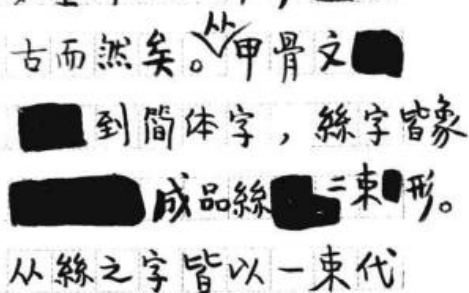 古而然矣。从甲骨文
到简体字，絲字皆象
成品絲二束形。
从絲之字皆以一束代